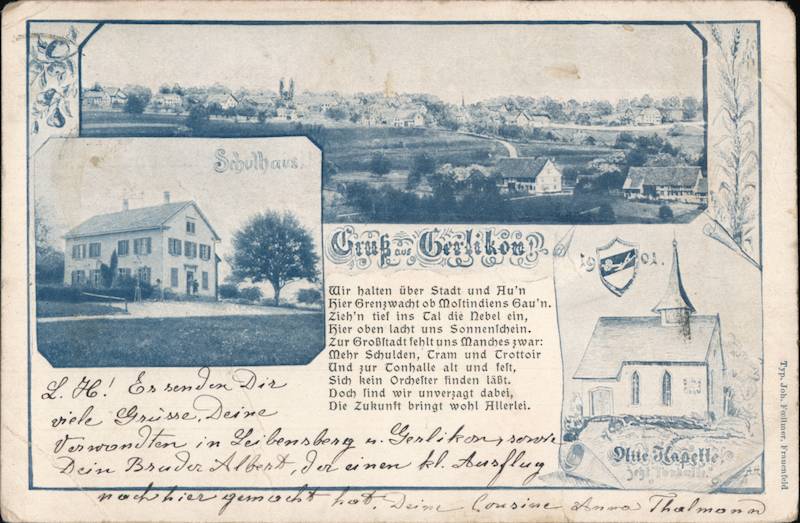 Schulhaus.
Gruß aus Gerlikon
1901.
Wir halten über Stadt und Au'n
Hier Grenzwacht ob Mostindiens Gau'n.
Zieh'n tief ins Tal die Nebel ein,
Hier oben lacht uns Sonnenschein.
Zur Großstadt fehlt uns Manches zwar:
Mehr Schulden, Tram und Trottoir
Und zur Tonhalle alt und fest,
Sich kein Orchester finden läßt.
Doch sind wir unverzagt dabei,
Die Zukunft bringt wohl Allerlei.
Alte Kapelle
Jetzt
Typ. Joh. Frauenfeld
L. H! Es senden Dir
viele Grüsse, Deine
Verwandten in Leibensberg u. Gerlikon, sowie
Dein Bruder Albert, der einen kl. Ausflug
nach hier gemacht hat. Deine Cousine Anna Thalmann